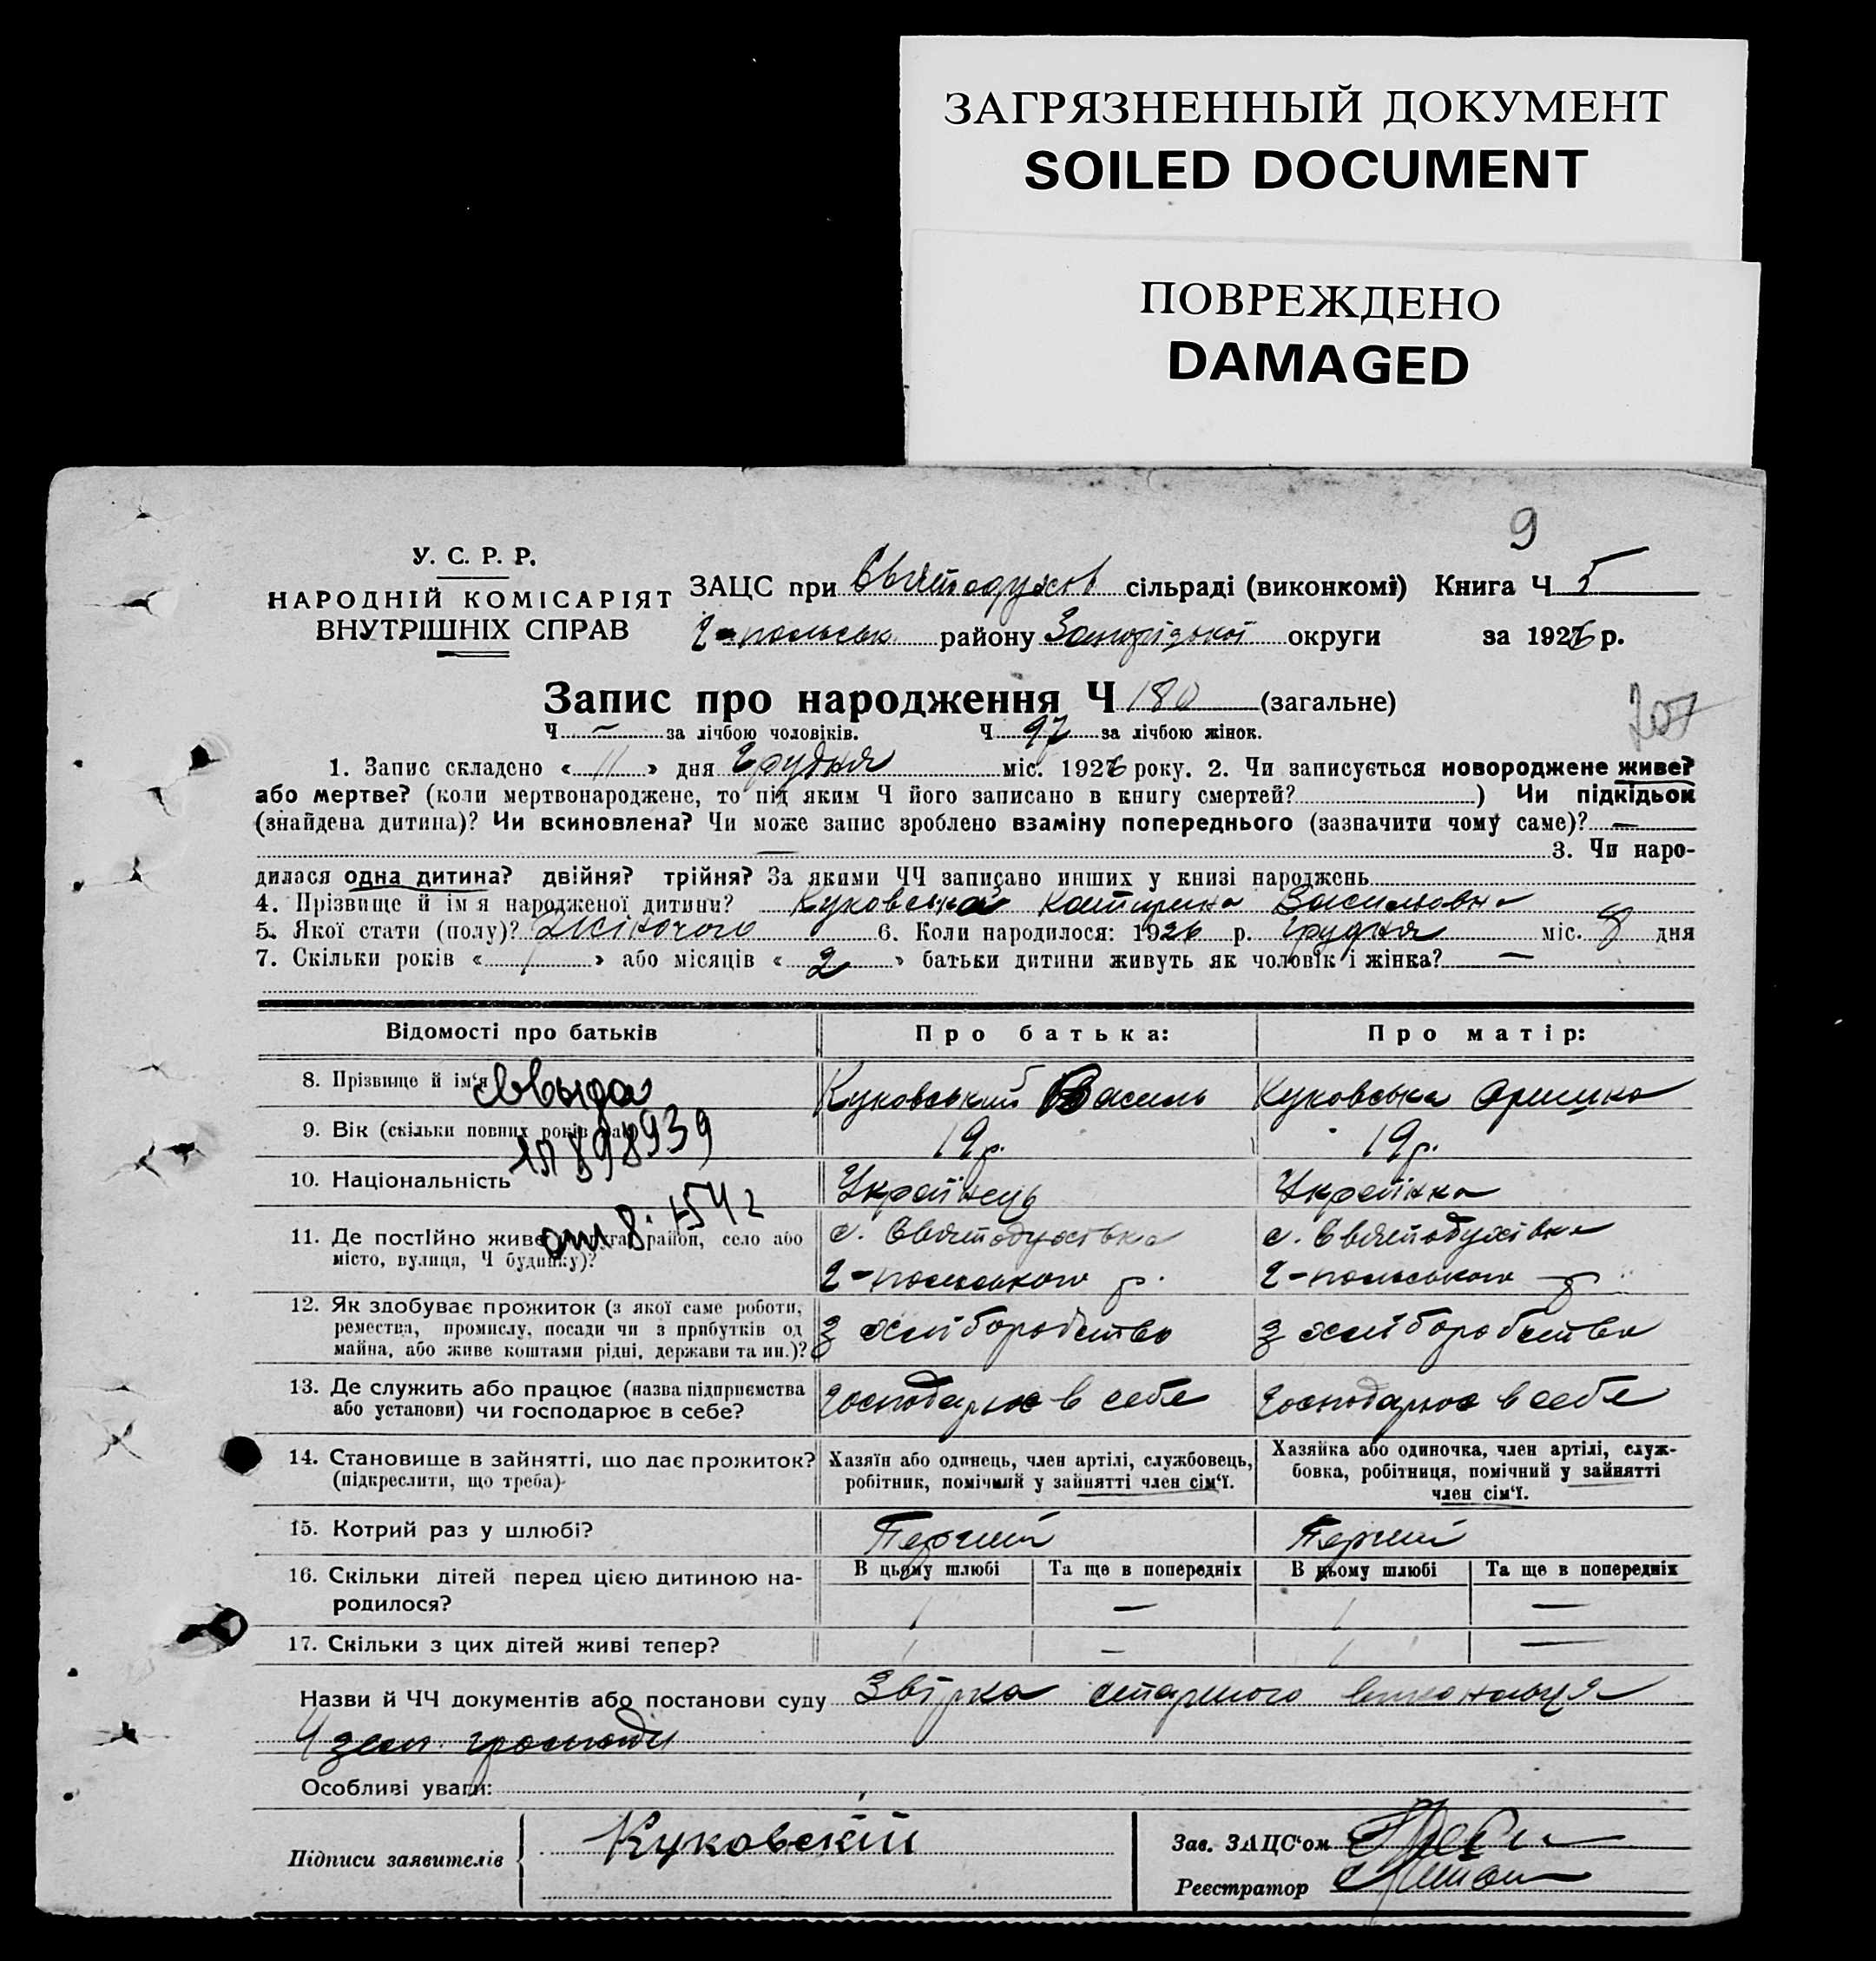 ЗАГРЯЗНЕННЫЙ ДОКУМЕНТ
SOILED DOCUMENT
ПОВРЕЖДЕНО
DAMAGED
9
У. С. Р. Р.
НАРОДНІЙ КОМІСАРІЯТ
ВНУТРІШНІХ СПРАВ
ЗАЦС при Святодухов сільраді (виконкомі) Книга Ч 5
Г-польськ. району Запорізької округи за 1926 р.
Запис про народження Ч 180 (загальне)
207
Ч — за лічбою чоловіків. Ч 97 за лічбою жінок.
1. Запис складено « 11 » дня Грудня міс. 1926 року. 2. Чи записується новороджене живе?
або мертве? (коли мертвонароджене, то під яким Ч його записано в книгу смертей? ) Чи підкідьок
(знайдена дитина)? Чи всиновлена? Чи може запис зроблено взаміну попереднього (зазначити чому саме)? —
— 3. Чи наро-
дилася одна дитина? двійня? трійня? За якими ЧЧ записано инших у книзі народжень
4. Прізвище й імя народженої дитини? Куковська Катирина Васильовна
5. Якої стати (полу)? Жіночого 6. Коли народилося: 1926 р. Грудня міс. 8 дня
7. Скільки років « / » або місяців « 2 » батьки дитини живуть як чоловік і жінка? —
Відомості про батьків Про батька: Про матір:
8. Прізвище й ім'я Куковський Василь Куковська Оришка
9. Вік (скільки повних років 19 р. 19 р.
10. Національність Українець Українка
11. Де постійно живе район, село або
місто, вулиця, Ч будинку)?
с. Святодухівка
Г-польського р.
с. Святодухівка
Г-польського р.
12. Як здобуває прожиток (з якої саме роботи,
ремества, промислу, посади чи з прибутків од
майна, або живе коштами рідні, держави та ин.)?
З хліборобства З хліборобства
13. Де служить або працює (назва підприємства
або установи) чи господарює в себе?
Господарює в себе Господарює в себе
14. Становище в зайнятті, що дає прожиток?
(підкреслити, що треба)
Хазяїн або одинець, член артілі, службовець,
робітник, помічний у зайнятті член сім'ї.
Хазяйка або одиночка, член артілі, служ-
бовка, робітниця, помічний у зайнятті
член сім'ї.
15. Котрий раз у шлюбі? Перший Перший
16. Скільки дітей перед цією дитиною на-
родилося?
В цьому шлюбі Та ще в попередніх В цьому шлюбі Та ще в попередніх
/ — / —
17. Скільки з цих дітей живі тепер? / — / —
Назви й ЧЧ документів або постанови суду Звірка старшого виконавця
Ч зем. громади
Особливі уваги:
Підписи заявителів Куковскій
Зав. ЗАЦС'ом
Реєстратор